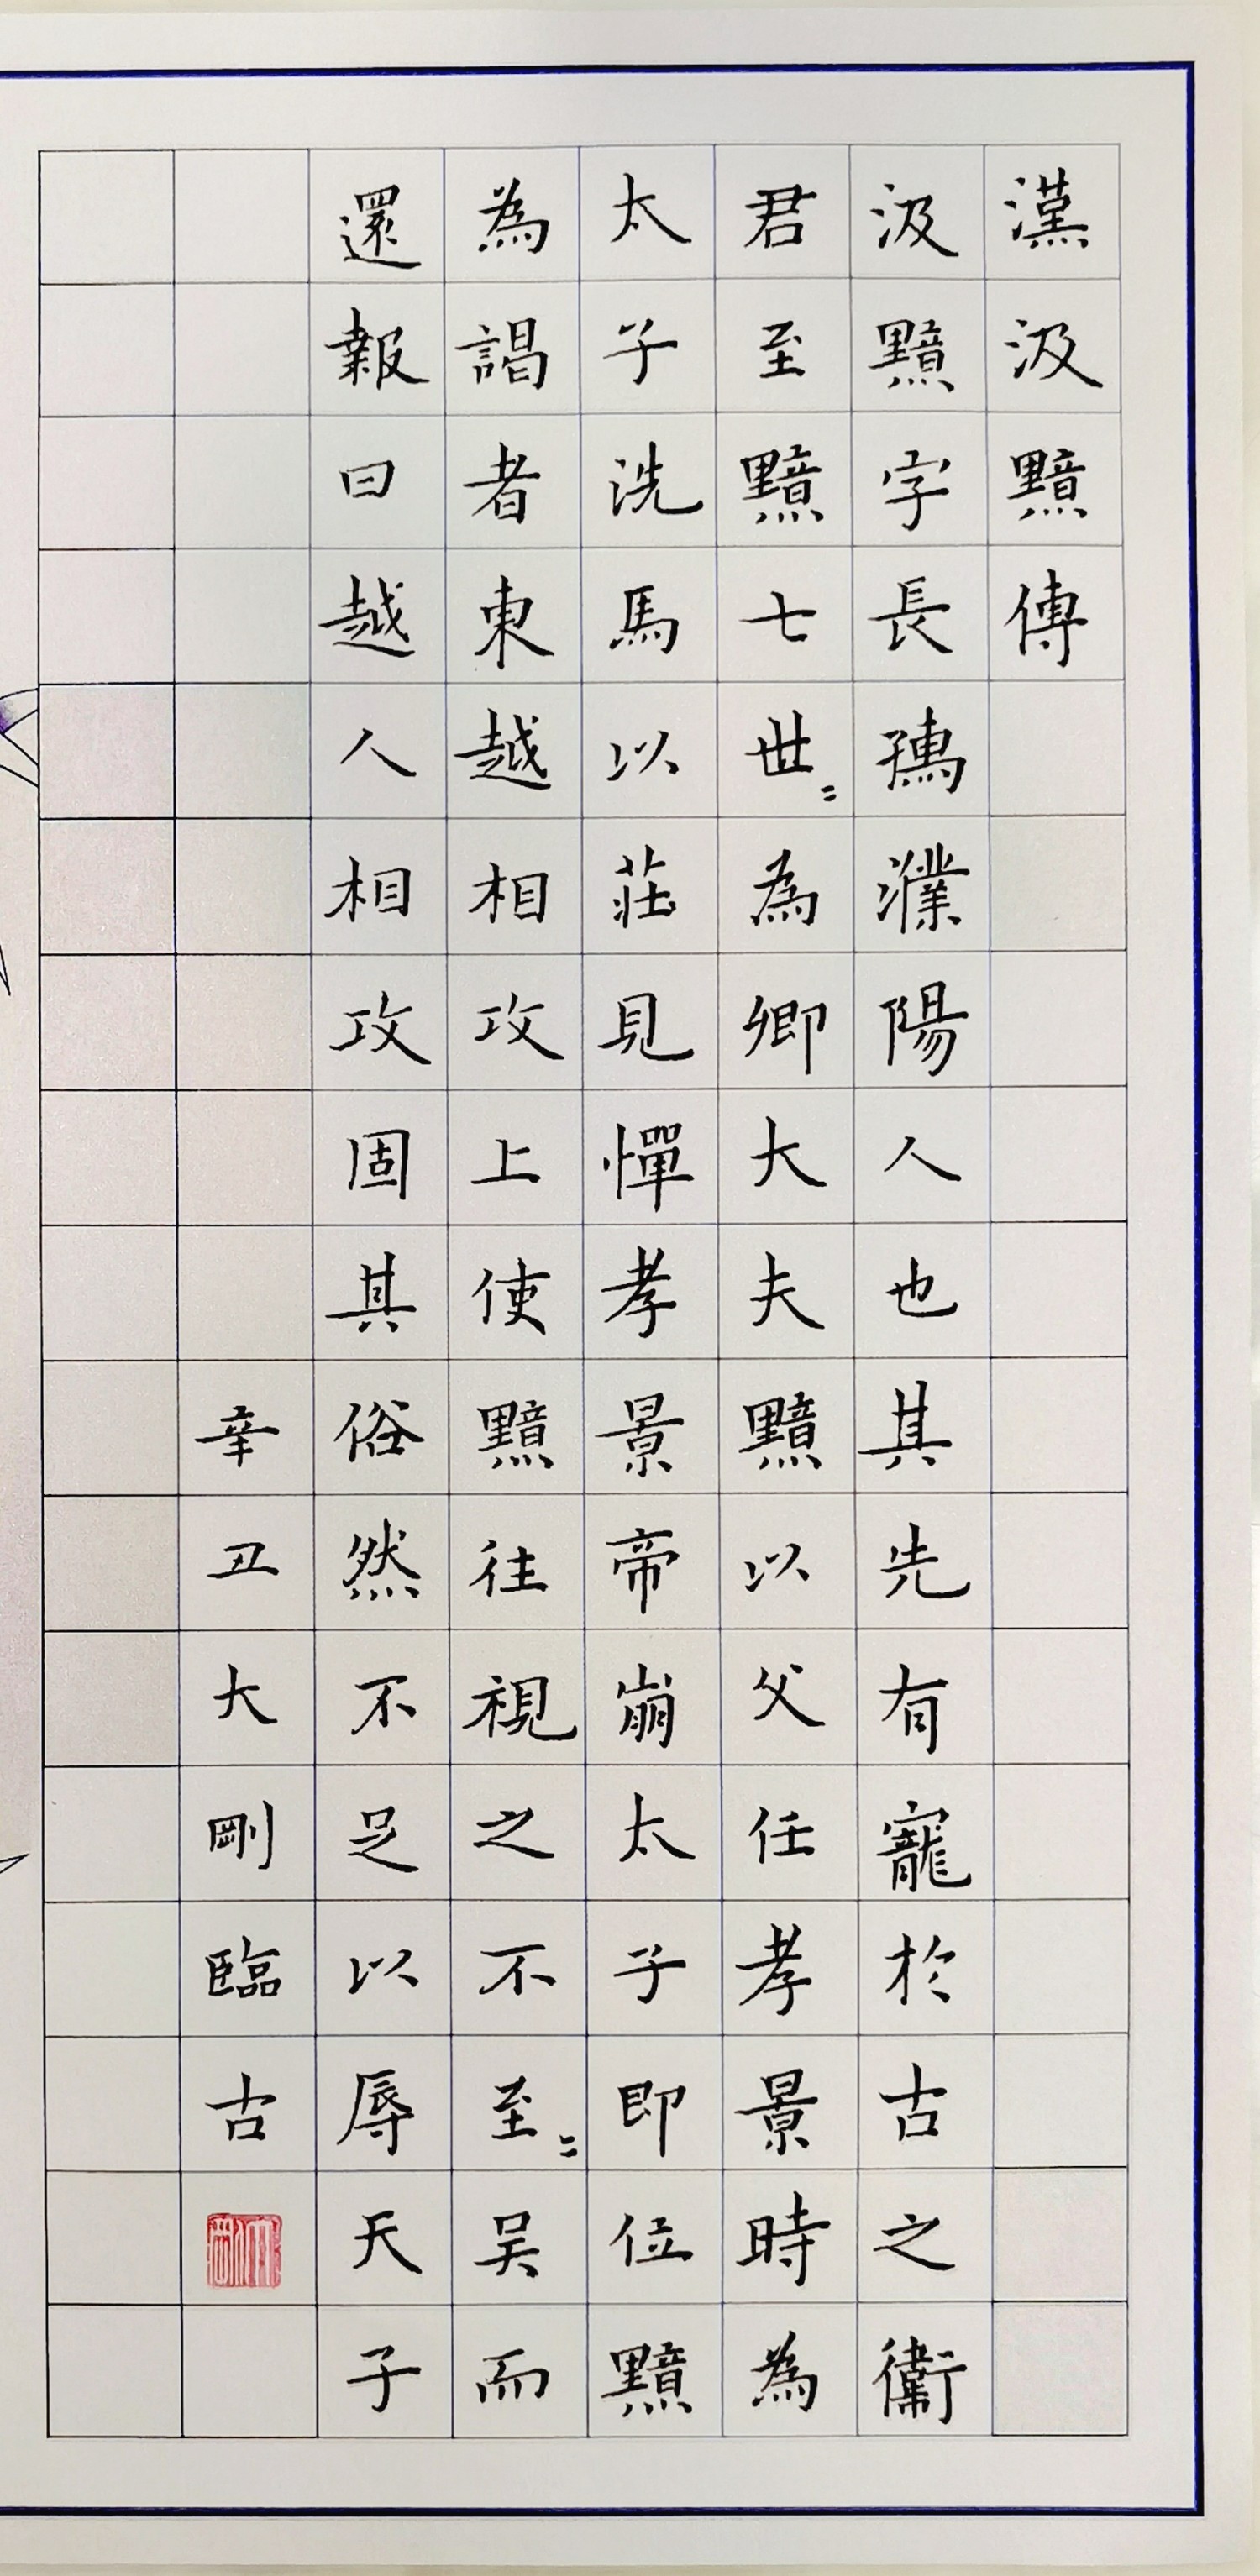 漢汲黯傳
汲黯字長孺濮陽人也其先有寵於古之衛
君至黯七世〻為卿大夫黯以父任孝景時為
太子洗馬以莊見憚孝景帝崩太子即位黯
為謁者東越相攻上使黯往視之不至〻吳而
還報曰越人相攻固其俗然不足以辱天子
辛丑大剛臨古